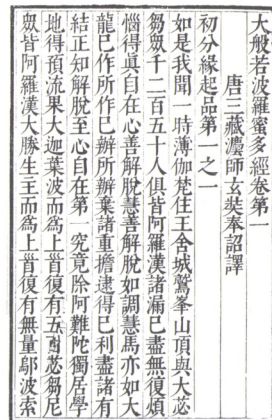 大般若波羅蜜多經卷第一
唐三藏灋師玄奘奉詔譯
初分緣起品第一之一
如是我聞一時薄伽梵住王舍城鷲峯山頂與大苾
芻眾千二百五十人俱皆阿羅漢諸漏已盡無復煩
惱得真自在心善解脫慧善解脫如調慧馬亦如大
龍已作所作已辦所辦棄諸重擔逮得己利盡諸有
結正知解脫至心自在第 究竟除阿難陀獨居學
地得預流果大迦葉波而爲上首復有五百苾芻尼
眾皆阿羅漢大勝生王而爲上首復有無量鄔波索